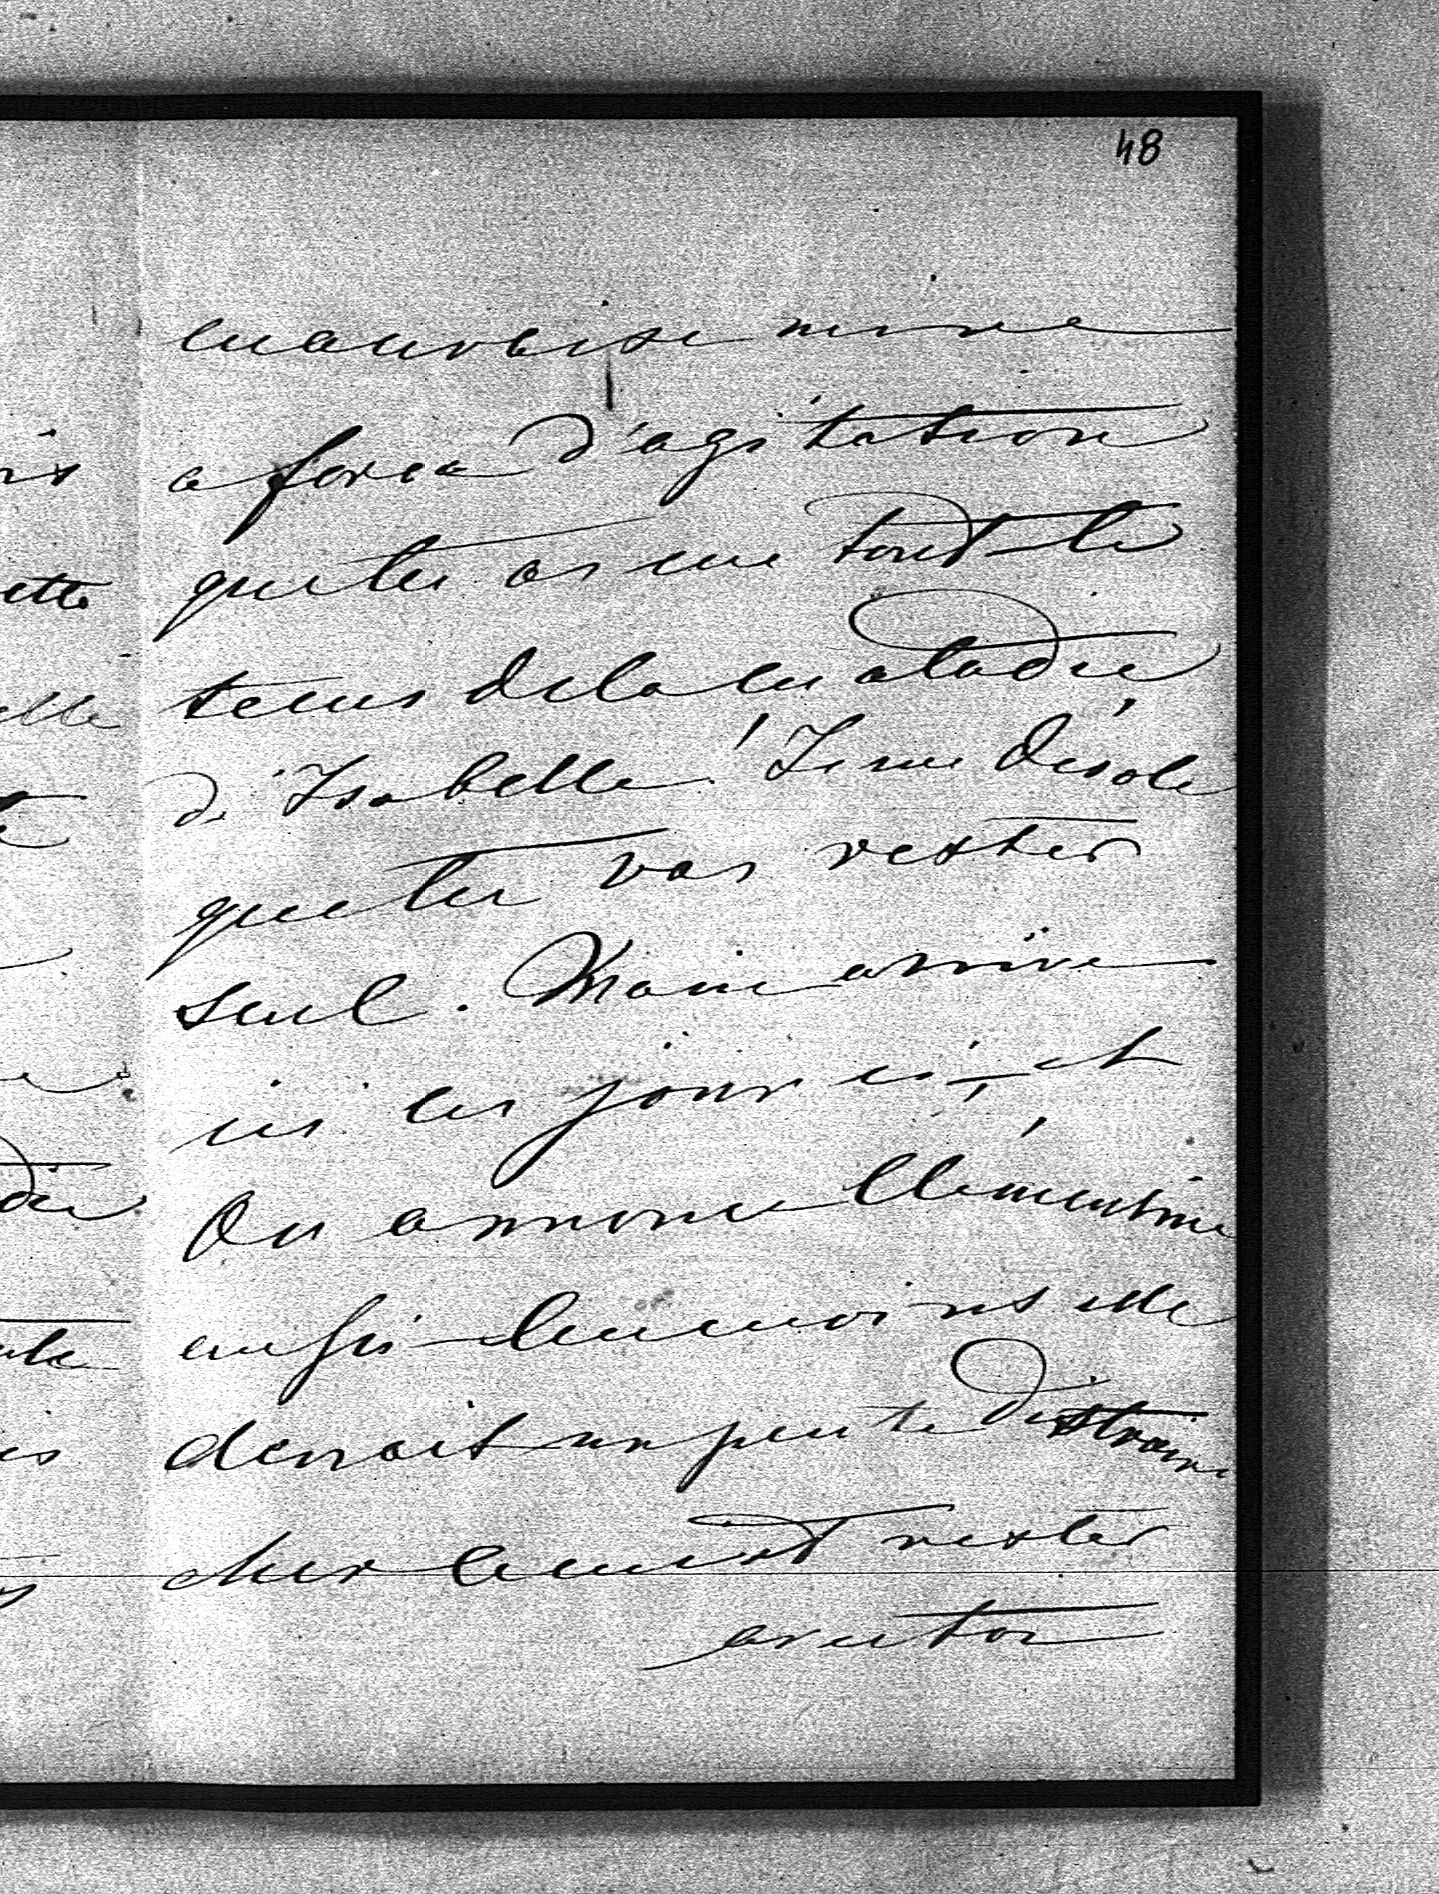 48
mauvaise mine
a force d'agitation
que tu as eue tout le
tems de la maladie
d'Isabelle! Je me désole
que tu vas rester
seul. Marie arrive
ici ces jours ci, et
On annonce Clémentine
aussi
un peu te distraire
rester